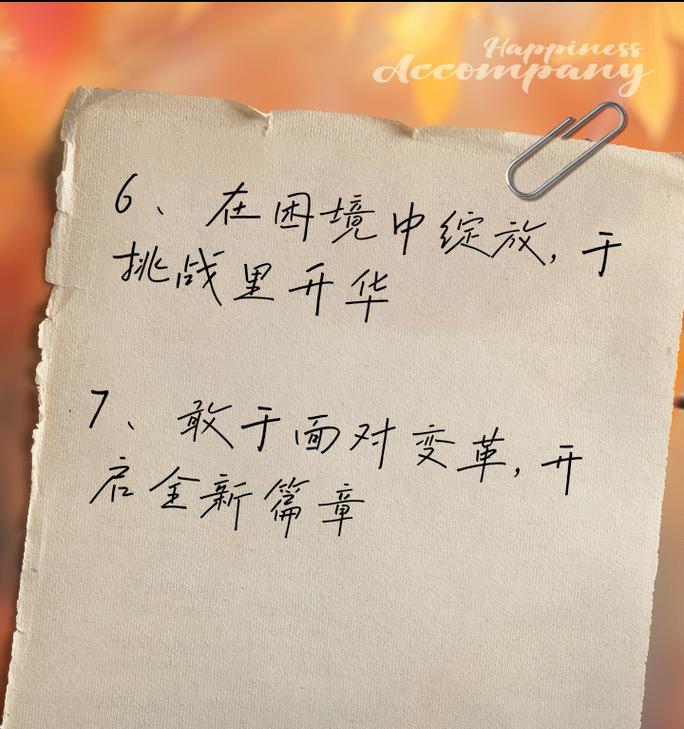 Happiness
Accompany
6、在困境中绽放,于
挑战里开华
7、敢于面对变革,开
启全新篇章